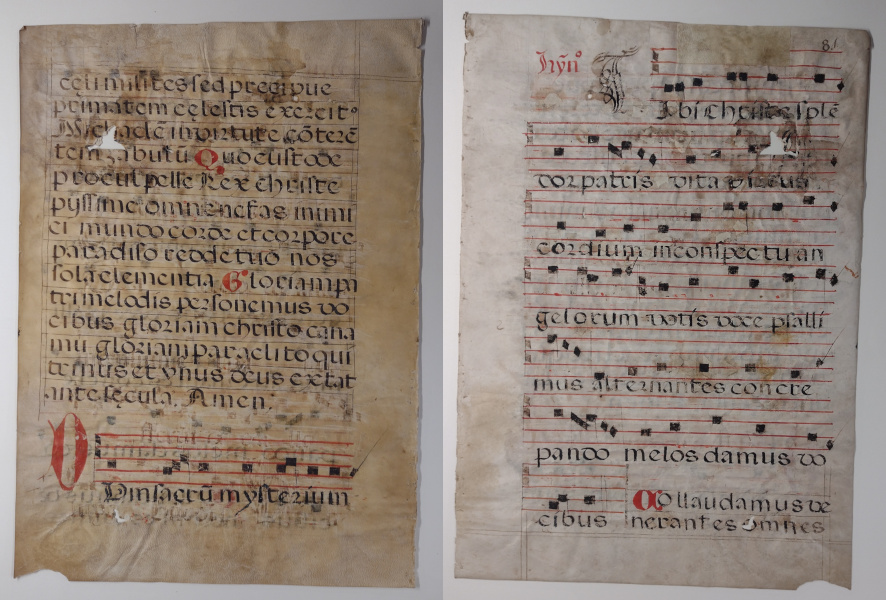 cęli milites sed precipue
primatem cęlestis exercit⁹
Michaelē in virtute cōterē
tem zabulū Quo custode
procul pelle Rex christe
pijssime omne nefas inimi
ci mundo corde et corpore
paradiso redde tuo nos
sola clementia Gloriam pa
tri melodis personemus vo
cibus gloriam christo cana
mus gloriam paraclito qui
trinus et vnus deus extat
ante sęcula. Amen:
Dum sacrū mysterium
81
Hỹnº
Tibi christe splē
dor patris vita virtus
cordium in conspectu an
gelorum votis voce psalli
mus alternantes concre
pando melos damus vo
cibus
Collaudamus ve
nerantes omnes